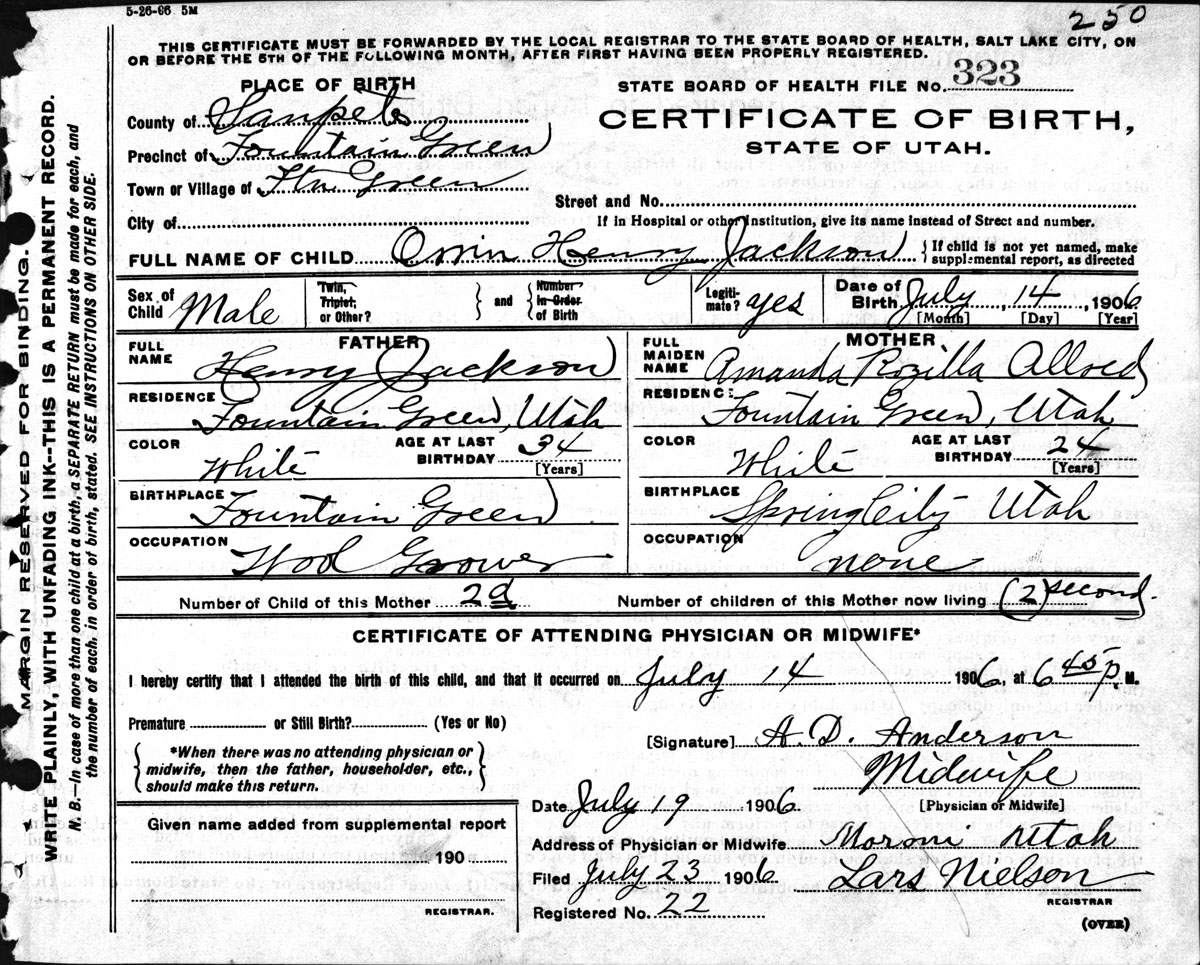 5-26-06 5M
250
THIS CERTIFICATE MUST BE FORWARDED BY THE LOCAL REGISTRAR TO THE STATE BOARD OF HEALTH, SALT LAKE CITY, ON
OR BEFORE THE 5TH OF THE FOLLOWING MONTH, AFTER FIRST HAVING BEEN PROPERLY REGISTERED.
PLACE OF BIRTH
STATE BOARD OF HEALTH FILE No. 323
County of Sanpete
CERTIFICATE OF BIRTH,
Precinct of Fountain Green
STATE OF UTAH.
Town or Village of Ftn Green
Street and No.
City of
If in Hospital or other Institution, give its name instead of Street and number.
FULL NAME OF CHILD Orrin Henry Jackson
If child is not yet named, make
supplemental report, as directed
Sex of Child Male
Twin, Triplet, or Other? and Number In Order of Birth
Legitimate? yes
Date of Birth July 14 1906
[Month] [Day] [Year]
FATHER
FULL NAME Henry Jackson
RESIDENCE Fountain Green, Utah
COLOR White
AGE AT LAST BIRTHDAY 34 [Years]
BIRTHPLACE Fountain Green
OCCUPATION Wool Grower
MOTHER
FULL MAIDEN NAME Amanda Rozilla Allred
RESIDENCE: Fountain Green, Utah
COLOR White
AGE AT LAST BIRTHDAY 24 [Years]
BIRTHPLACE Spring City Utah
OCCUPATION none
Number of Child of this Mother 2d
Number of children of this Mother now living (2) second.
CERTIFICATE OF ATTENDING PHYSICIAN OR MIDWIFE*
I hereby certify that I attended the birth of this child, and that it occurred on July 14 1906, at 6 45 P. M.
Premature or Still Birth? (Yes or No)
[Signature] A. D. Anderson
*When there was no attending physician or
midwife, then the father, householder, etc.,
should make this return.
Midwife
[Physician or Midwife]
Date July 19 1906
Address of Physician or Midwife Moroni Utah
Filed July 23 1906 Lars Nielson
REGISTRAR
Registered No. 22
(OVER)
Given name added from supplemental report
190
REGISTRAR.
MARGIN RESERVED FOR BINDING.
WRITE PLAINLY, WITH UNFADING INK--THIS IS A PERMANENT RECORD.
N. B.--In case of more than one child at a birth, a SEPARATE RETURN must be made for each, and
the number of each, in order of birth, stated. SEE INSTRUCTIONS ON OTHER SIDE.